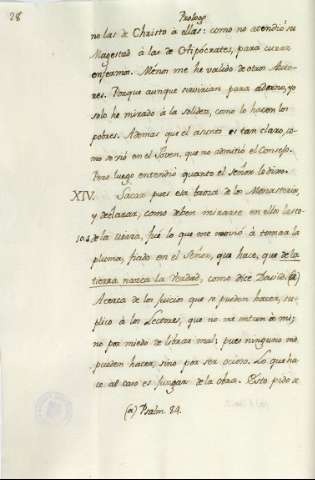 28
Prologo
no las de Christo à ellas: como no atendió su
Magestad à las de Hipócrates, para curar
enfermos. Ménos me he valido de otros Auto-
res. Porque aunque servirian para adorno, yo
solo he mirado à la solidez, como lo hacen los
pobres. Ademas que el asunto es tan claro, co-
mo se vió en el Joven, que no admitió el Consejo.
Pero luego entendió quanto el Señor le dixo.
XIV. Sacar pues esa broza de los Monasterios,
y declarar, como deben mirarse en ellos
de la tierra, fué lo que me movió à tomar la
pluma, fiado en el Señor, que hace, que de la
tierra nazca la Verdad, como dice David. (a)
Acerca de los Juicios que se pueden hacer, su-
plico à los Lectores, que no me metan à mi;
no por miedo de librar mal; pues ninguno me
pueden hacer, sino por ser ocioso. Lo que ha-
ce al caso es juzgar de la obra. Esto pido se
(a) Psalm. 84.